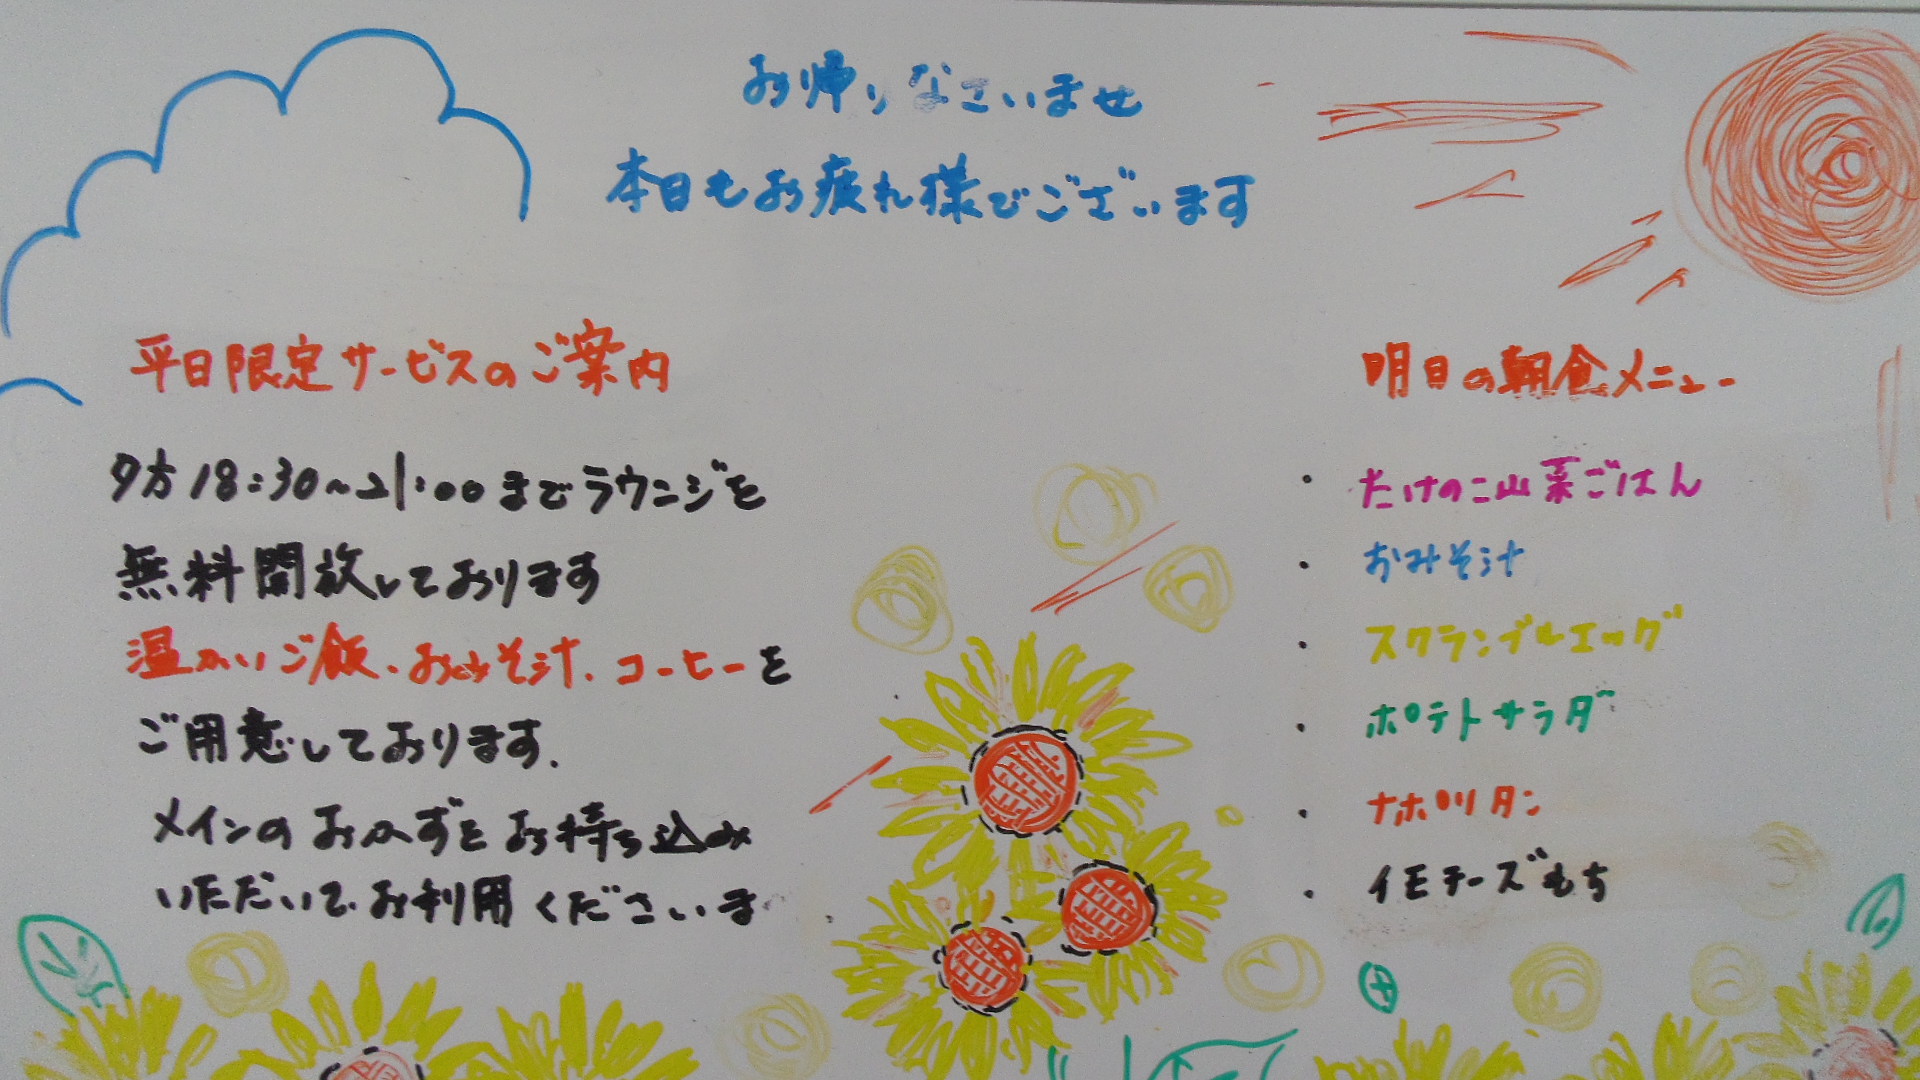 お帰りなさいませ
本日もお疲れ様でございます
平日限定サービスのご案内
夕方18:30～21:00までラウンジを
無料開放しております
温かいご飯、おみそ汁、コーヒーを
ご用意しております。
メインのおかずをお持ち込み
いただいて、お利用くださいま
明日の朝食メニュー
・たけのこ山菜ごはん
・おみそ汁
・スクランブルエッグ
・ポテトサラダ
・ナポリタン
・イモチーズもち